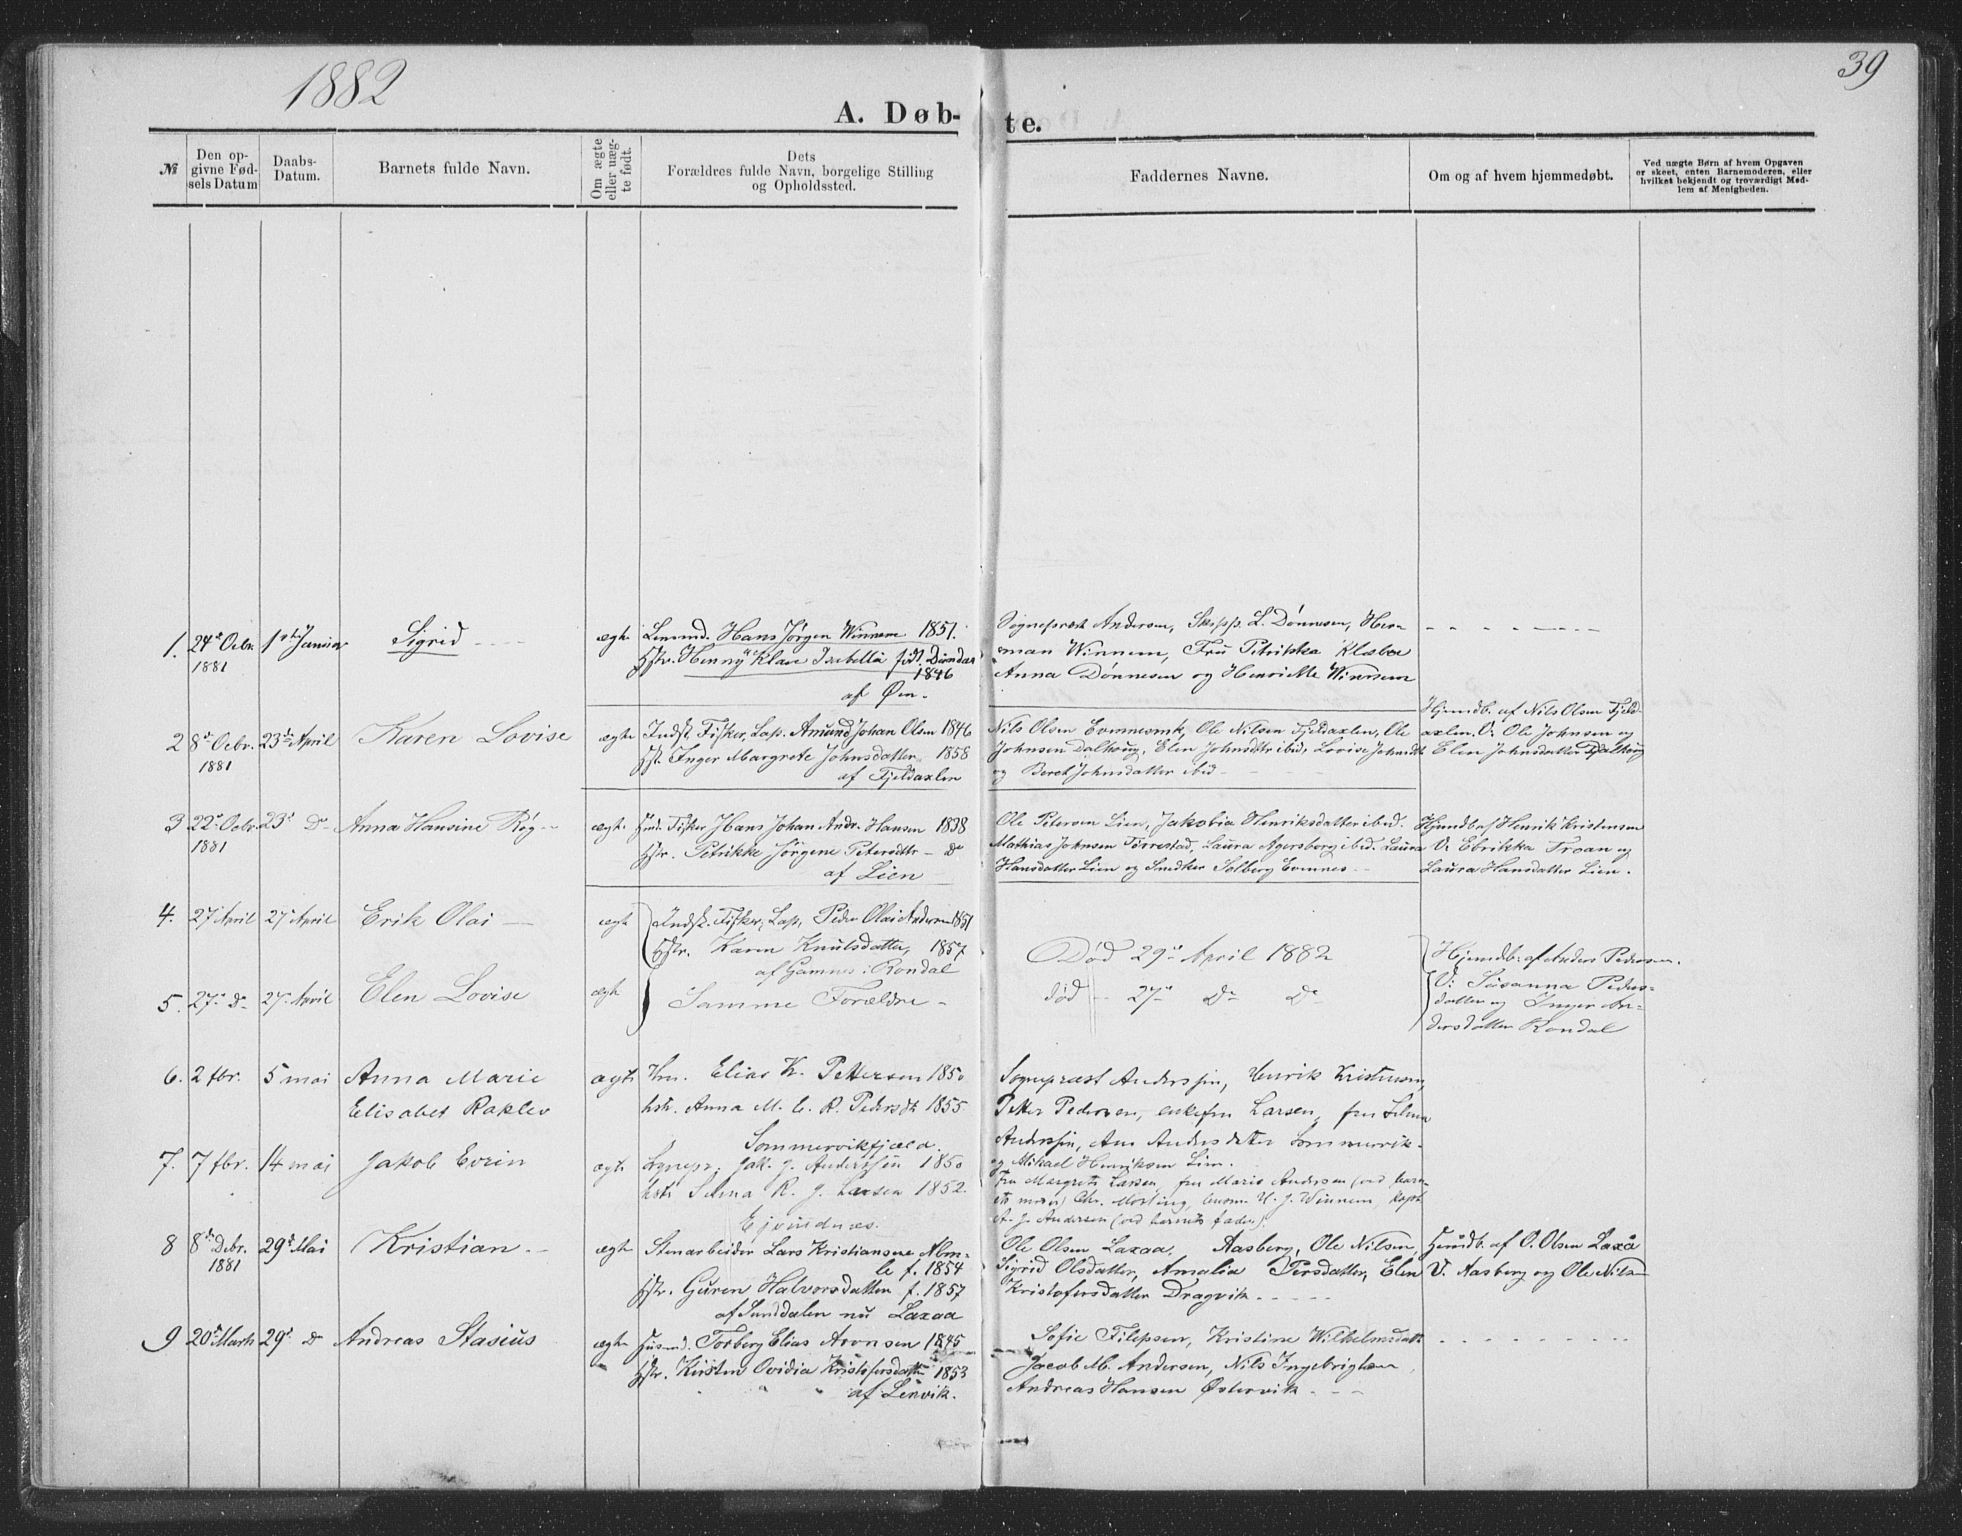 1882
39
A. Døb-
te.
№
Den op-
givne Fød-
sels Datum
Daabs-
Datum.
Barnets fulde Navn.
Om ægte
eller uæg-
te født.
Dets
Forældres fulde Navn, borgelige Stilling
og Opholdssted.
Faddernes Navne.
Om og af hvem hjemmedøbt.
Ved uægte Børn af hvem Opgaven
er skeet, enten Barnemoderen, eller
hvilket bekjendt og troværdigt Med-
lem af Menigheden.
1. 24de Octbr. 1ste Januar Sigrid ægte Hans Jørgen Winnem 1851.
1881
Hstr. Henny Klare Isabella født
1846
af Øen.
Sognepræst Andersen, L. Dønnesen, Her-
man Winnem, Fru Petrikka Klæboe
Anna Dønnesen og Henriette Winnem
2 8de Octbr. 23de April Karen Lovise ægte Indst. Fisker, Lap. Amund Johan Olsen 1846
1881
Hst. Inger Margrete Johnsdatter 1858
af Fjeldaxlen
Nils Olsen Evenesmk, Ole Nilsen Fjeldaxlen, Ole
Johnsen Dalhoug, Elen Johnsdtr ibid, Lovise Johnsdt
og Beret Johnsdatter ibid
Hjemdb. af Nils Olsen Fjeld-
axlen. V: Ole Johnsen og
Elen Johnsdatter Dalhoug
3 22de Octbr. 23de Do Anna Hansine Røg ægte Fisker Hans Johan Andr. Hansen 1838
1881
Hstr. Petrikke Jørgene Petersdtr - Do
af Lien
Ole Petersen Lien, Jakobia Henriksdatter ibid.
Mathias Johnsen Tørrestad, Laura Agersborg ibid. Laura
Hansdatter Lien og Snedker Solberg Evenes
Hjemdb af Henrik Kristensen
V: Ebrikka Troan og
Laura Hansdatter Lien.
4. 27 April 27 April Erik Olai ægte Indst. Fisker, Lap, Peder Olai Andersen 1851
Hstr. Karen Knutsdatter, 1857
af Gamnes i Rondal
Død 29de April 1882
Hjemdb. af Anders Pedersen.
V: Susanna Peders-
datter og Inger An-
dersdatter Rondal
5. 27de Do 27 April Elen Lovise ægte Samme Forældre -
død 27de Do Do
6. 2 fbr. 5 mai Anna Marie ægte Hm. Elias K. Pettersen 1850
Elisabet Rakler hstr. Anna M. C. R. Pedersdt. 1855
Sommervikfjæld.
Sognepræst Anderssen, Henrik Kristensen,
Petter Pedersen, enkefru Larsen, fru Selma
Anderssen, Ane Andersdatter Sommervik
og Mikael Henriksen Lien.
7. 7 fbr. 14 mai Jakob Evrin ægte Sognepr. Jak. J. Anderssen 1850
hstr Selma R. J. Larsen 1852.
Ejvindnes.
Fru Margrete Larsen, fru Marie Andersen (ved barn-
ets moder) Chr. Norling, H. J. Winnem, kapt.
A. J. Andersen (ved barnets fader).
8 8de Debr. 29de Mai Kristian ægte Stenarbeider Lars Kristiansen Alm-
1881
le f. 1854
Hstr. Guren Halvorsdatter f. 1857
af Sunddalen nu Laxaa
Ole Olsen Laxaa, Aasberg, Ole Nilsen,
Sigrid Olsdatter, Amalia Persdatter, Elen
Kristofersdatter Dragvik
Hemdb. af O. Olsen Laxå
V. Aasberg og Ole Nilsen
9 20de Marts 29de do Andreas Stasius ægte Husmd. Torberg Elias Aronsen 1845
Hstr. Kirsten Ovidia Kristofersdatter 1853
af Lenvik.
Sofie Filepsen, Kristine Wilhelmsdatt
Jacob M. Andersen, Nils Ingebrigtsen,
Andreas Hansen Østervik